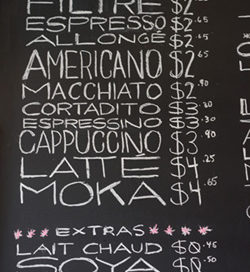 FILTRE $2
ESPRESSO $2.65
ALLONGÉ $2
AMERICANO $2.65
MACCHIATO $2.90
CORTADITO $3.30
ESPRESSINO $3.30
CAPPUCCINO $3.90
LATTÉ $4.25
MOKA $4.65
EXTRAS
LAIT CHAUD $0.45
SOYA $0